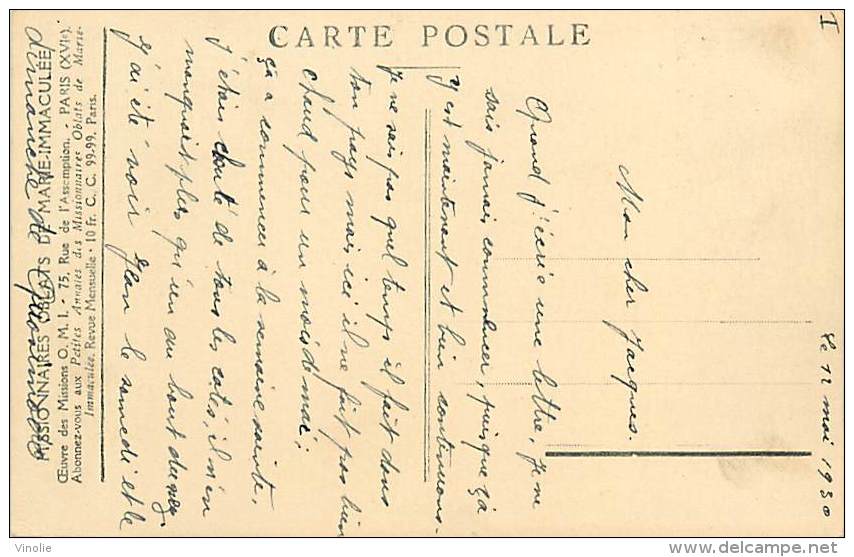 CARTE POSTALE
I
Le 12 mai 1930
Mon cher Jacques.
Quand j'écris une lettre, je ne
sais jamais commencer, puisque ça
y est maintenant et bien continuons.
Je ne sais pas quel temps il fait dans
ton pays mais ici il ne fait pas bien
chaud pour un mois de mai;
ça a commencer à la semaine sainte.
J'étais chouté de tous les cotés, il m'en
manquait plus qu'un au bout du nez.
J'ai été voir Jean le samedi et le
dimanche de
MISSIONNAIRES OBLATS DE MARIE-IMMACULÉE
Œuvre des Missions O. M. I. - 75, Rue de l'Assomption. - PARIS (XVIe).
Abonnez-vous aux Petites Annales des Missionnaires Oblats de Marie-
Immaculée. Revue Mensuelle · 10 fr. C. C. 99-99, Paris.
Vinolie
www.delcampe.net